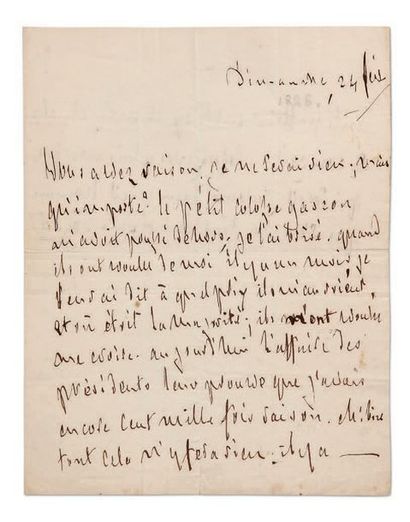 Dimanche, 24 fév
1828.
Vous avez raison, je ne serai rien; mais
qu'importe? le petit colosse gascon
m'avoit poussé dehors, je l'ai brisé. quand
ils ont voulu de moi, il y a un mois je
leur ai dit à quel prix ils m'auroient
et où étoit la majorité; ils m'ont voulu
me croire. aujourd'hui l'affaire des
présidents leur prouve que j'avais
encore cent mille fois raison. Eh! bien
tout cela n'y fera rien. il y a —